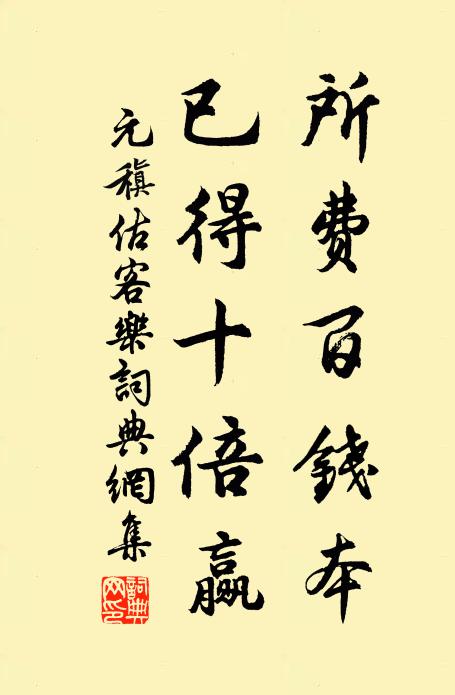 所費百錢本
已得十倍贏
元稹估客樂詞典網集
詞典网印